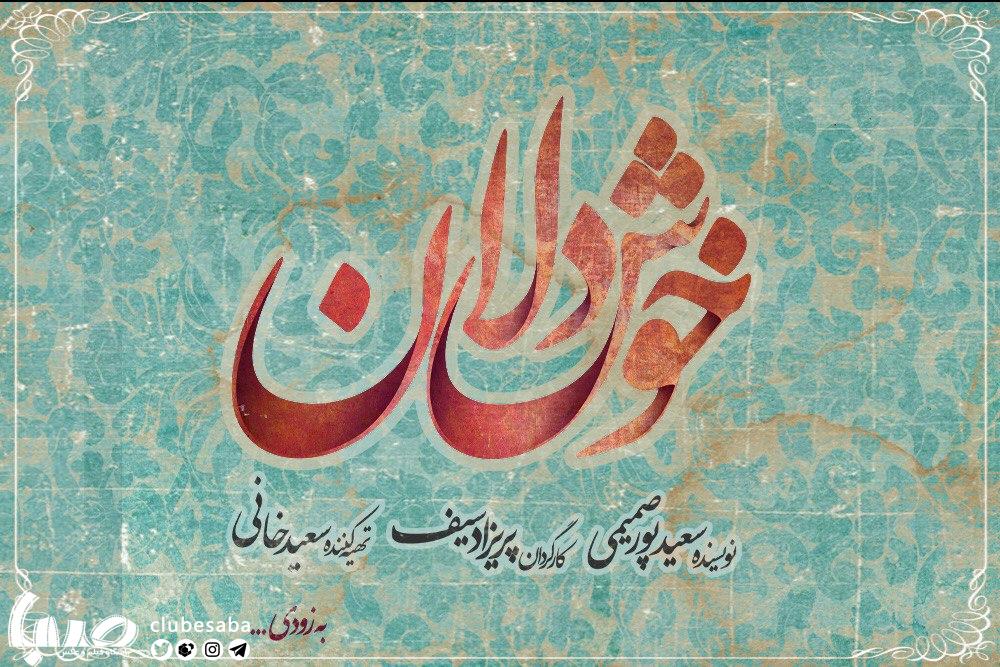 خوش‌دلان
نویسنده سعید پورصمیمی کارگردان پریزاد سیف تهیه‌کننده سعید خانی
به زودی...
clubesaba
صبا